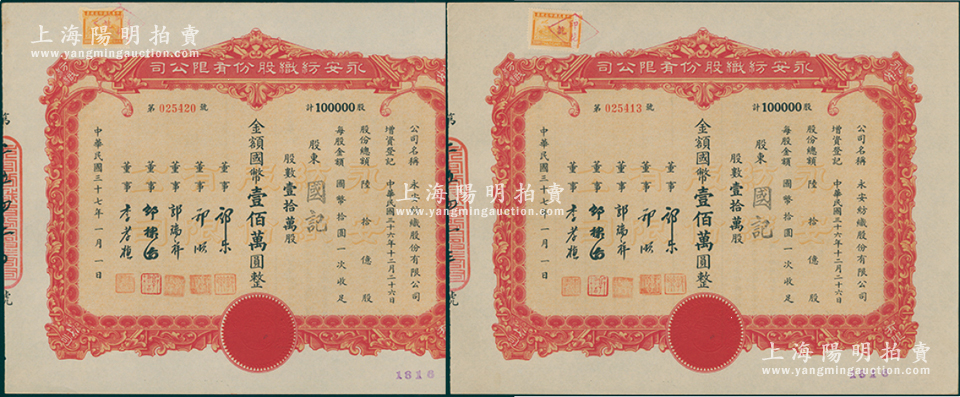 上海陽明拍賣
www.yangmingauction.com
永安紡織股份有限公司
第 025420 號
計 100000 股
公司名稱 永安紡織股份有限公司
增資登記 中華民國三十六年十二月二十六日
股份總額 陸拾億股
每股金額 國幣拾圓一次收足
股東 國記
股數壹拾萬股
金額國幣壹佰萬圓整
董事
董事
董事
董事
董事
中華民國三十七年一月一日
第
號
1316
永安紡織股份有限公司
第 025413 號
計 100000 股
公司名稱 永安紡織股份有限公司
增資登記 中華民國三十六年十二月二十六日
股份總額 陸拾億股
每股金額 國幣拾圓一次收足
股東 國記
股數壹拾萬股
金額國幣壹佰萬圓整
董事
董事
董事
董事
董事
中華民國三十七年一月一日
第
號
上海陽明拍賣
www.yangmingauction.com